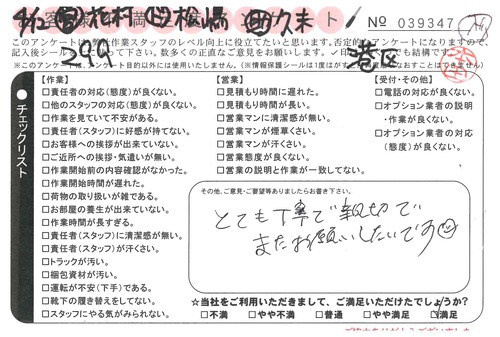 9/12 花村 松嶋 久末 ト № 039347
299 港区
このアンケートは弊社作業スタッフのレベル向上に役立てたいと思います。否定的なアンケートになりますので、
記入後シール して下さい。数多くの正直なご意見をお願いします。✓印 でも結構です。
※このアンケートは、アンケート目的以外には使用いたしません。(※情報保護シールは1度はがす ことはできません)
チェックリスト
【作業】
□責任者の対応(態度)が良くない。
□他のスタッフの対応(態度)が良くない。
□作業を見ていて不安がある。
□責任者(スタッフ)に好感が持てない。
□お客様への挨拶が出来ていない。
□ご近所への挨拶・気遣いが無い。
□作業開始前の内容確認がなかった。
□作業開始時間が遅れた。
□荷物の取り扱いが雑である。
□お部屋の養生が出来ていない。
□作業時間が長すぎる。
□責任者(スタッフ)に清潔感が無い。
□責任者(スタッフ)が汗くさい。
□トラックが汚い。
□梱包資材が汚い。
□運転が不安(下手)である。
□靴下の履き替えをしてない。
□スタッフにやる気がみられない。
【営業】
□見積もり時間に遅れた。
□見積もり時間が長い。
□営業マンに清潔感が無い。
□営業マンが煙草くさい。
□営業マンが汗くさい。
□営業態度が良くない。
□営業の説明と作業が一致してない。
【受付・その他】
□電話の対応が良くない。
□オプション業者の説明
・作業が良くない。
□オプション業者の対応
(態度)が良くない。
その他、ご意見・ご要望等ありましたらお書き下さい。
とても丁寧で親切で
またお願いしたいです
☆当社をご利用いただきまして、ご満足いただけたでしょうか?
□不満 □やや不満 □普通 □やや満足 ☑満足